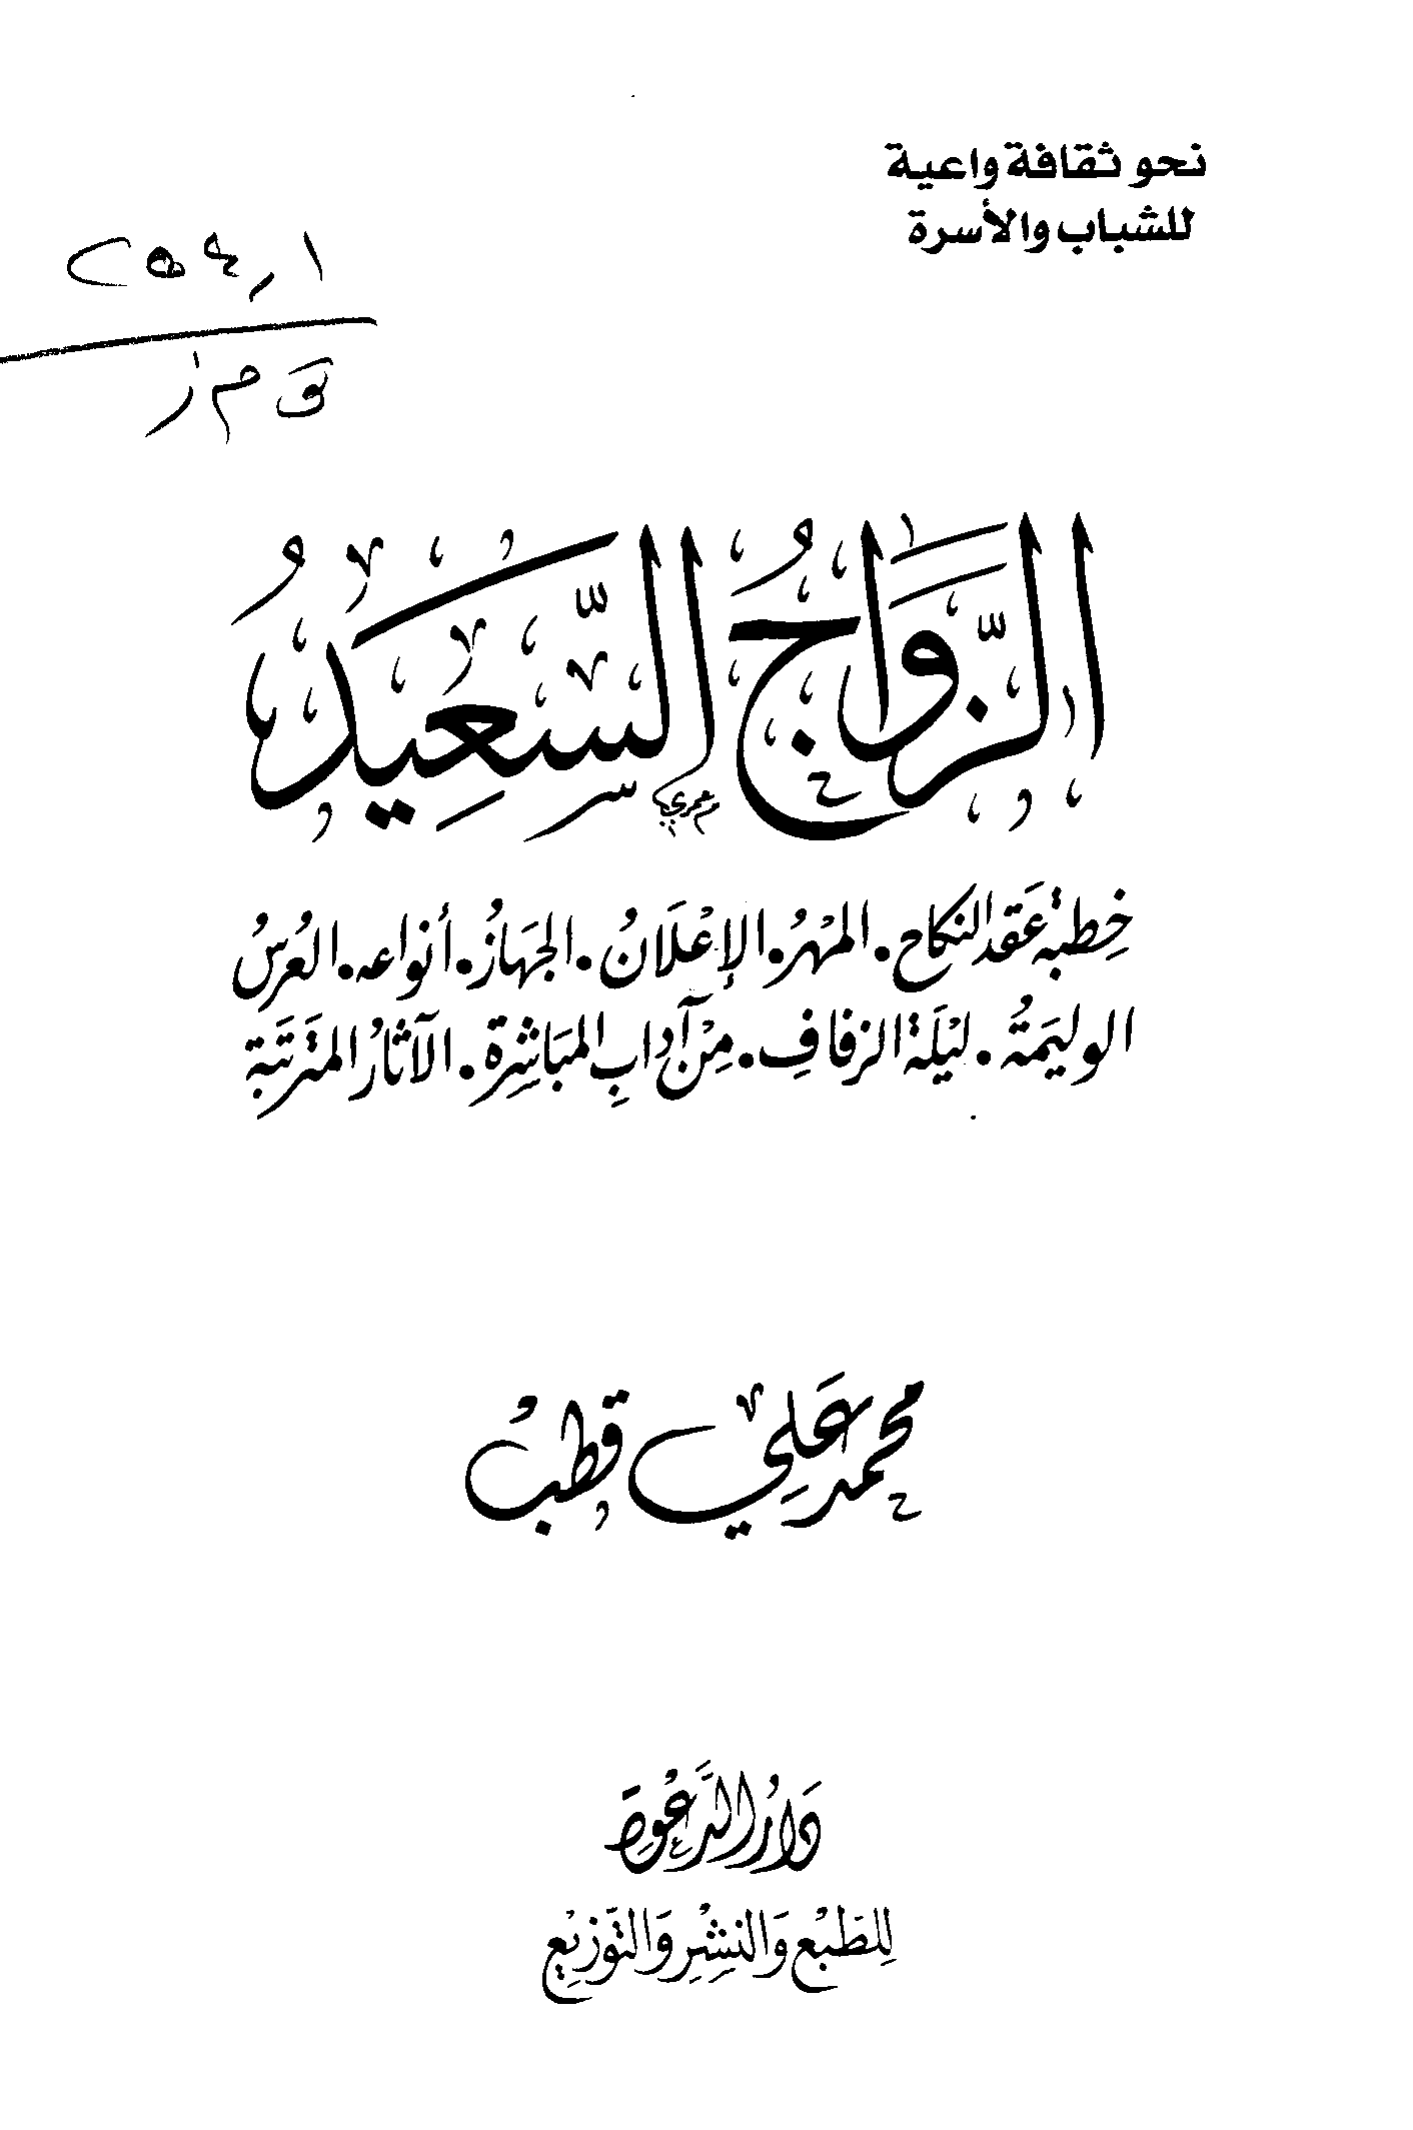 نحو ثقافة واعية
للشباب والأسرة
ق م ز
الزَّوَاجُ السَّعِيدُ
خِطبة عَقد النكاح . المهْرُ . الإعْلَانُ . الجهَازُ . أنواعه . العُرسُ
الوليمَةُ . ليْلَة الزفافِ . مِنْ آدابِ المبَاشِرة . الآثارُ المترَتبَة
محمد عَلِي قطبْ
دَارُ الدَّعْوة
لِلطَبْع وَالنشِْر وَالتَّوزيْع